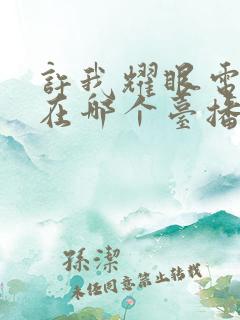 許我耀眼電
在哪个臺播
孫潔
未经同意禁止转载